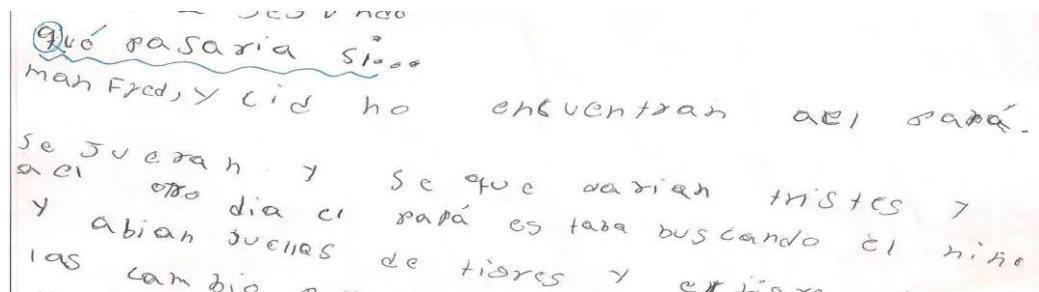 segundo
Qué pasaria si...
man Fred, y Cid no encuentran ael papá.
se jueran y se que darian tristes y
ael otro dia el papá es taba buscando el niño
y abian juellas de tigres y
las cam bio